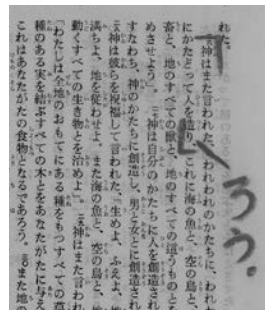 れた。
神はまた言われた、「われわれのかたちに、われわ
にかたどって人を造り、これに海の魚と、空の鳥と、
畜と、地のすべての獣と、地のすべての這うものとを
めさせよう」。神は自分のかたちに人を創造され
すなわち、神のかたちに創造し、男と女とに創造され
神は彼らを祝福して言われた、「生めよ、ふえよ、地
満ちよ、地を従わせよ。また海の魚と、空の鳥と、地
動くすべての生き物とを治めよ」。神はまた言われ
「わたしは全地のおもてにある種をもつすべての草
種のある実を結ぶすべての木とをあなたがたに与え
これはあなたがたの食物となるであろう。30また地の
ろう。